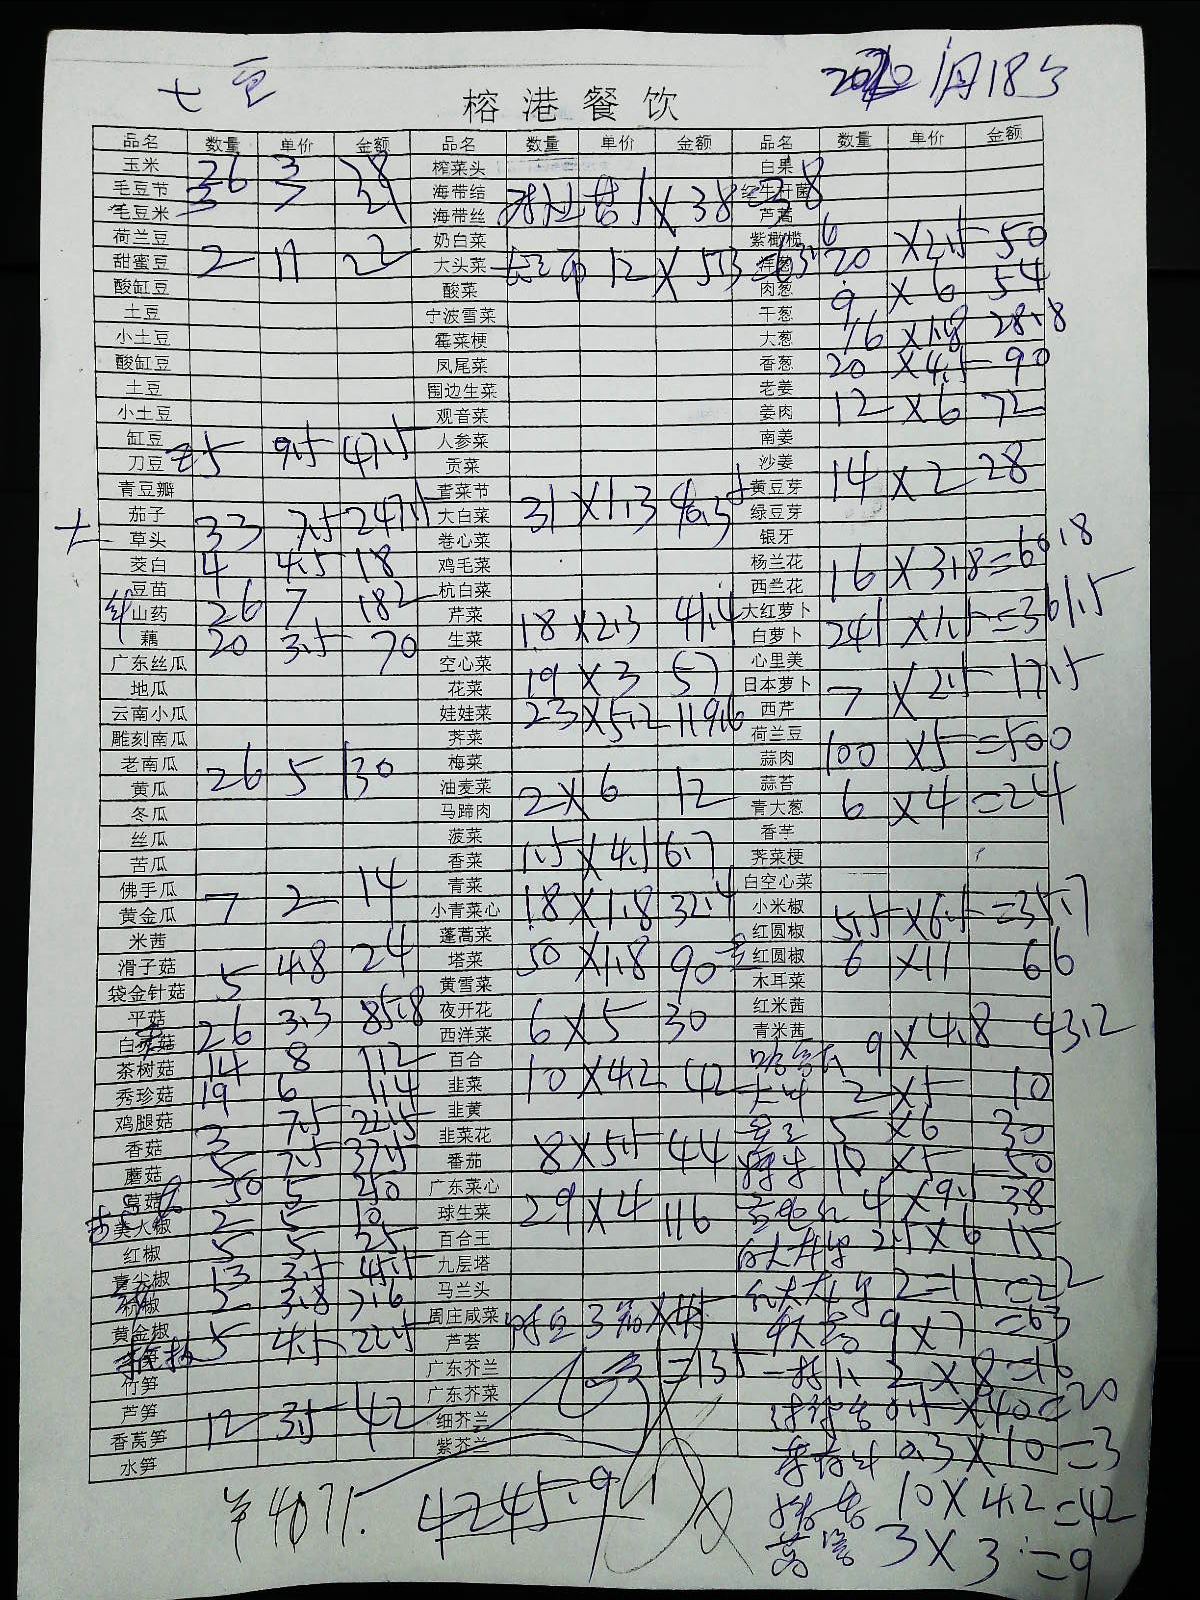 七 豆
2020 1月18号
榕港餐饮
品名 数量 单价 金额 品名 数量 单价 金额 品名 数量 单价 金额
玉米 26 3 78 榨菜头 白果
毛豆节 3 7 21 海带结 1 X 38 = 38
毛豆米 海带丝 芦蒿
荷兰豆 奶白菜 紫橄榄 X 2.5 = 50
甜蜜豆 2 11 22 大头菜 12 X 5.3 20
酸缸豆 酸菜 肉葱 9 X 6 54
土豆 宁波雪菜 干葱
小土豆 霉菜梗 大葱 16 X 1.8 28.8
酸缸豆 凤尾菜 香葱 20 X 4.5 = 90
土豆 围边生菜 老姜
小土豆 观音菜 姜肉 12 X 6 72
缸豆 5 9.5 47.5 人参菜 南姜
刀豆 贡菜 沙姜 14 X 2 28
青豆瓣 套菜节 黄豆芽
茄子 33 7.5 247.5 大白菜 31 X 1.3 40.3 绿豆芽
草头 卷心菜 银牙
茭白 4 4.5 18 鸡毛菜 杨兰花 16 X 3.8 = 60.8
豆苗 杭白菜 西兰花
山药 26 7 182 芹菜 18 X 2.3 41.4 大红萝卜 241 X 1.5 = 361.5
藕 20 3.5 70 生菜 白萝卜
广东丝瓜 空心菜 19 X 3 57 心里美
地瓜 花菜 日本萝卜 7 X 2.5 = 17.5
云南小瓜 娃娃菜 23 X 5.2 119.6 西芹
雕刻南瓜 荠菜 荷兰豆
老南瓜 梅菜 蒜肉 100 X 5 = 500
黄瓜 26 5 130 油麦菜 2 X 6 12 蒜苔
冬瓜 马蹄肉 青大葱 6 X 4 = 24
丝瓜 菠菜 香芋
苦瓜 香菜 1.5 X 4.5 6.7 荠菜梗
佛手瓜 青菜 白空心菜
黄金瓜 7 2 14 小青菜心 18 X 1.8 32.4 小米椒 5.5 X 6.5 = 35.7
米茜 蓬蒿菜 红圆椒
滑子菇 塔菜 50 X 1.8 90 红圆椒 6 X 11 66
袋金针菇 5 4.8 24 黄雪菜 木耳菜
平菇 夜开花 红米茜
26 3.3 85.8 西洋菜 6 X 5 30 青米茜 9 X 4.8 43.2
茶树菇 14 8 112 百合
秀珍菇 19 6 114 韭菜 10 X 4.2 42 2 X 5 10
鸡腿菇 韭黄
香菇 3 7.5 22.5 韭菜花 5 X 6 30
蘑菇 5 7.5 37.5 番茄 8 X 5.5 44 10 X 5 50
草菇 50 5 250 广东菜心
美人椒 2 5 10 球生菜 29 X 4 116 4 X 9.5 38
红椒 5 5 25 百合王 2.5 X 6 15
青尖椒 13 3.5 45.5 九层塔
杭椒 2 3.8 7.6 马兰头 2 = 11 = 22
黄金椒 周庄咸菜 3 X 45 9 X 7 = 63
5 4.5 22.5 芦荟
竹笋 广东芥兰 = 135 2 X 8 = 16
芦笋 广东芥菜
香莴笋 12 3.5 42 细芥兰 0.5 X 40 = 20
水笋 紫芥兰 0.3 X 10 = 3
¥4071. 4245.9 10 X 4.2 = 42
3 X 3 = 9